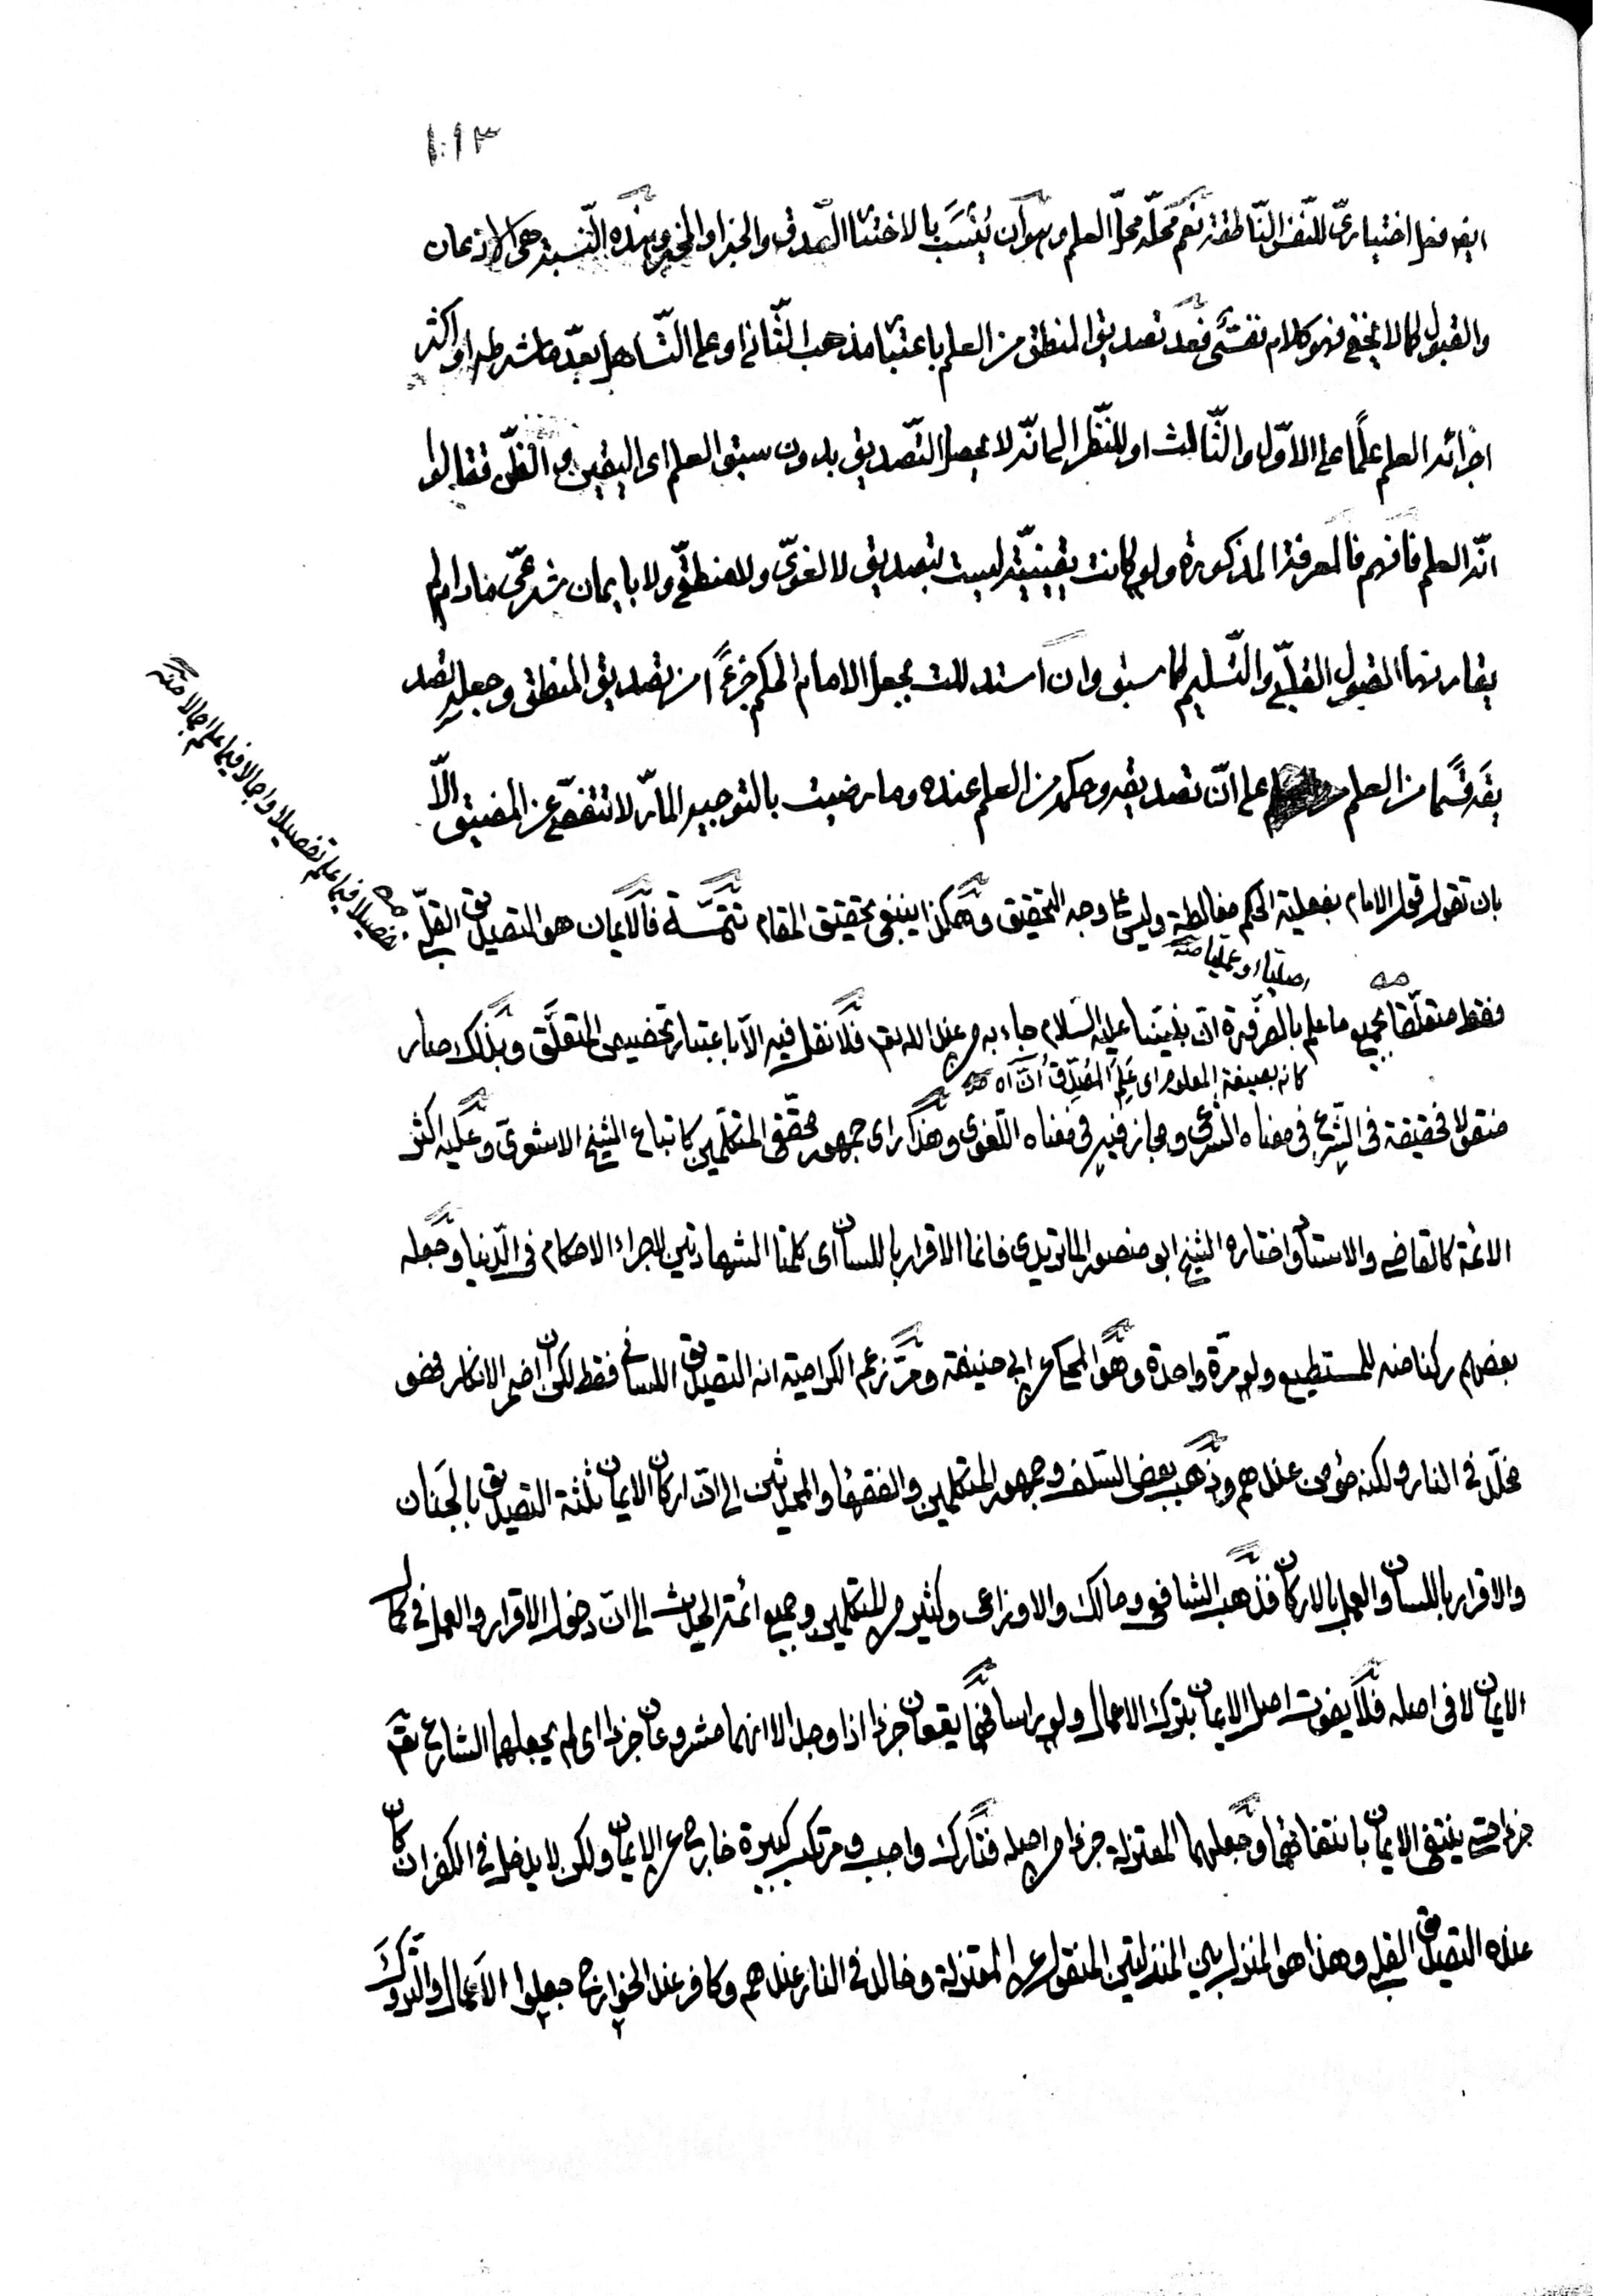 ١٠١٣
ايضا فعل اختياريّ للنّفس النّاطقة نعم محلّه محلّ العلم وهو أن يُنسَبَ بالاختيا الصّدق والخبر او المخبر وهذه النّسبة هى الاذعان
والقبول كما لا يخفى فهو كلام نفسىّ فعدّ تصديق المنطق من العلم باعتبا مذهب الثّانى او على التّساهل بعدّ ما شرطه او اكثر
اجزائه العلم علمًا على الاوّل والثّالث او للنّظر الى انّه لا يحصل التّصديق بدون سبق العلم اى اليقين او الظّن فقالوا
انّه العلم فافهم فالمعرفة المذكورة ولو كانت يقينيّة ليست بتصديق لا لغوىّ ولا منطقىّ ولا بايمان شرعىّ مادام لم
يقارنها القبول القلبىّ والتّسليم كما سبق وان استدللت بجعل الامام الحكم جزءً امن تصديق المنطق وجعلِه تصد
يقَه قسمًا من العلم على انّ تصديقه وحكمه من العلم عنده وما رضيت بالتوجيه المارّ لا تتفصّى عن المضيق الّا
بان تقول قول الامام بفعلية الحكم مغالطة وليس على وجه التحقيق وهكذا ينبغى تحقيق المقام تتمّة فالايمان هو التصديق القلبىّ
تفصيلا فيما علم تفصيلا واجمالا فيما علم اجمالا منه
اصليا او عمليا منه
فقط متعلّقا بجميع ما علم بالضّرورة انّ نبيّنا عليه السّلام جاء به من عند الله تع فلا نقل فيه الّا باعتبار تخصيص المتعلَّق وبذلك صار
كانه بصيغة المعلوم اى عَلِمَ المُصَدِّقُ انّ آه منه
منقولا فحقيقة فى الشّرع فى معناه الشرعى ومجاز فيه فى معناه اللّغوى وهذا رأى جمهور محقّقى المتكلّمين كاتباع الشيخ الاشعرىّ وعليه اكثر
الائمّة كالقاضى والاستاذ واختاره الشيخ ابو منصور الماتريدى فانما الاقرار باللسان اى كلمتا الشهادتين لاجراء الاحكام فى الدّنيا وجعله
بعضهم ركنا منه للمستطيع ولو مرّة واحدة وهو المحكى عن ابى حنيفة ومرّ زعم الكرامية انه التصديق اللسانى فقط لكن ان اضمر الانكار فهو
مخلّد فى النار ولكنه مؤمن عندهم وذهب بعض السّلف وجمهور المتكلمين والفقها والمحدثين الى انّ اركان الايمان ثلثة التصديق بالجَنان
والاقرار باللسان والعمل بالاركان فذهب الشافعى ومالك والاوزاعى وكثير من المتكلمين وجميع ائمة الحديث الى انّ دخول الاقرار والعمل فى كمال
الايمان لا فى اصله فلا يفوت اصل الايمان بترك الاعمال ولو راسا فهما يقعان جزءا اذا وجدا لا انهما مشروعان جزءا اى لم يجعلهما الشارع تع
جزءا حتى ينتفى الايمان بانتفائهما وجعلهما المعتزلة جزءا من اصله فتارك واجب ومرتكب كبيرة خارج عن الايمان ولكن لا يدخل فى الكفر ان كان
عنده التصديق القلبى وهذا هو المنزل بين المنزلتين المنقول عن المعتزلة وخالد فى النار عندهم وكافر عند الخوارج جعلوا الاَعمال والتروك